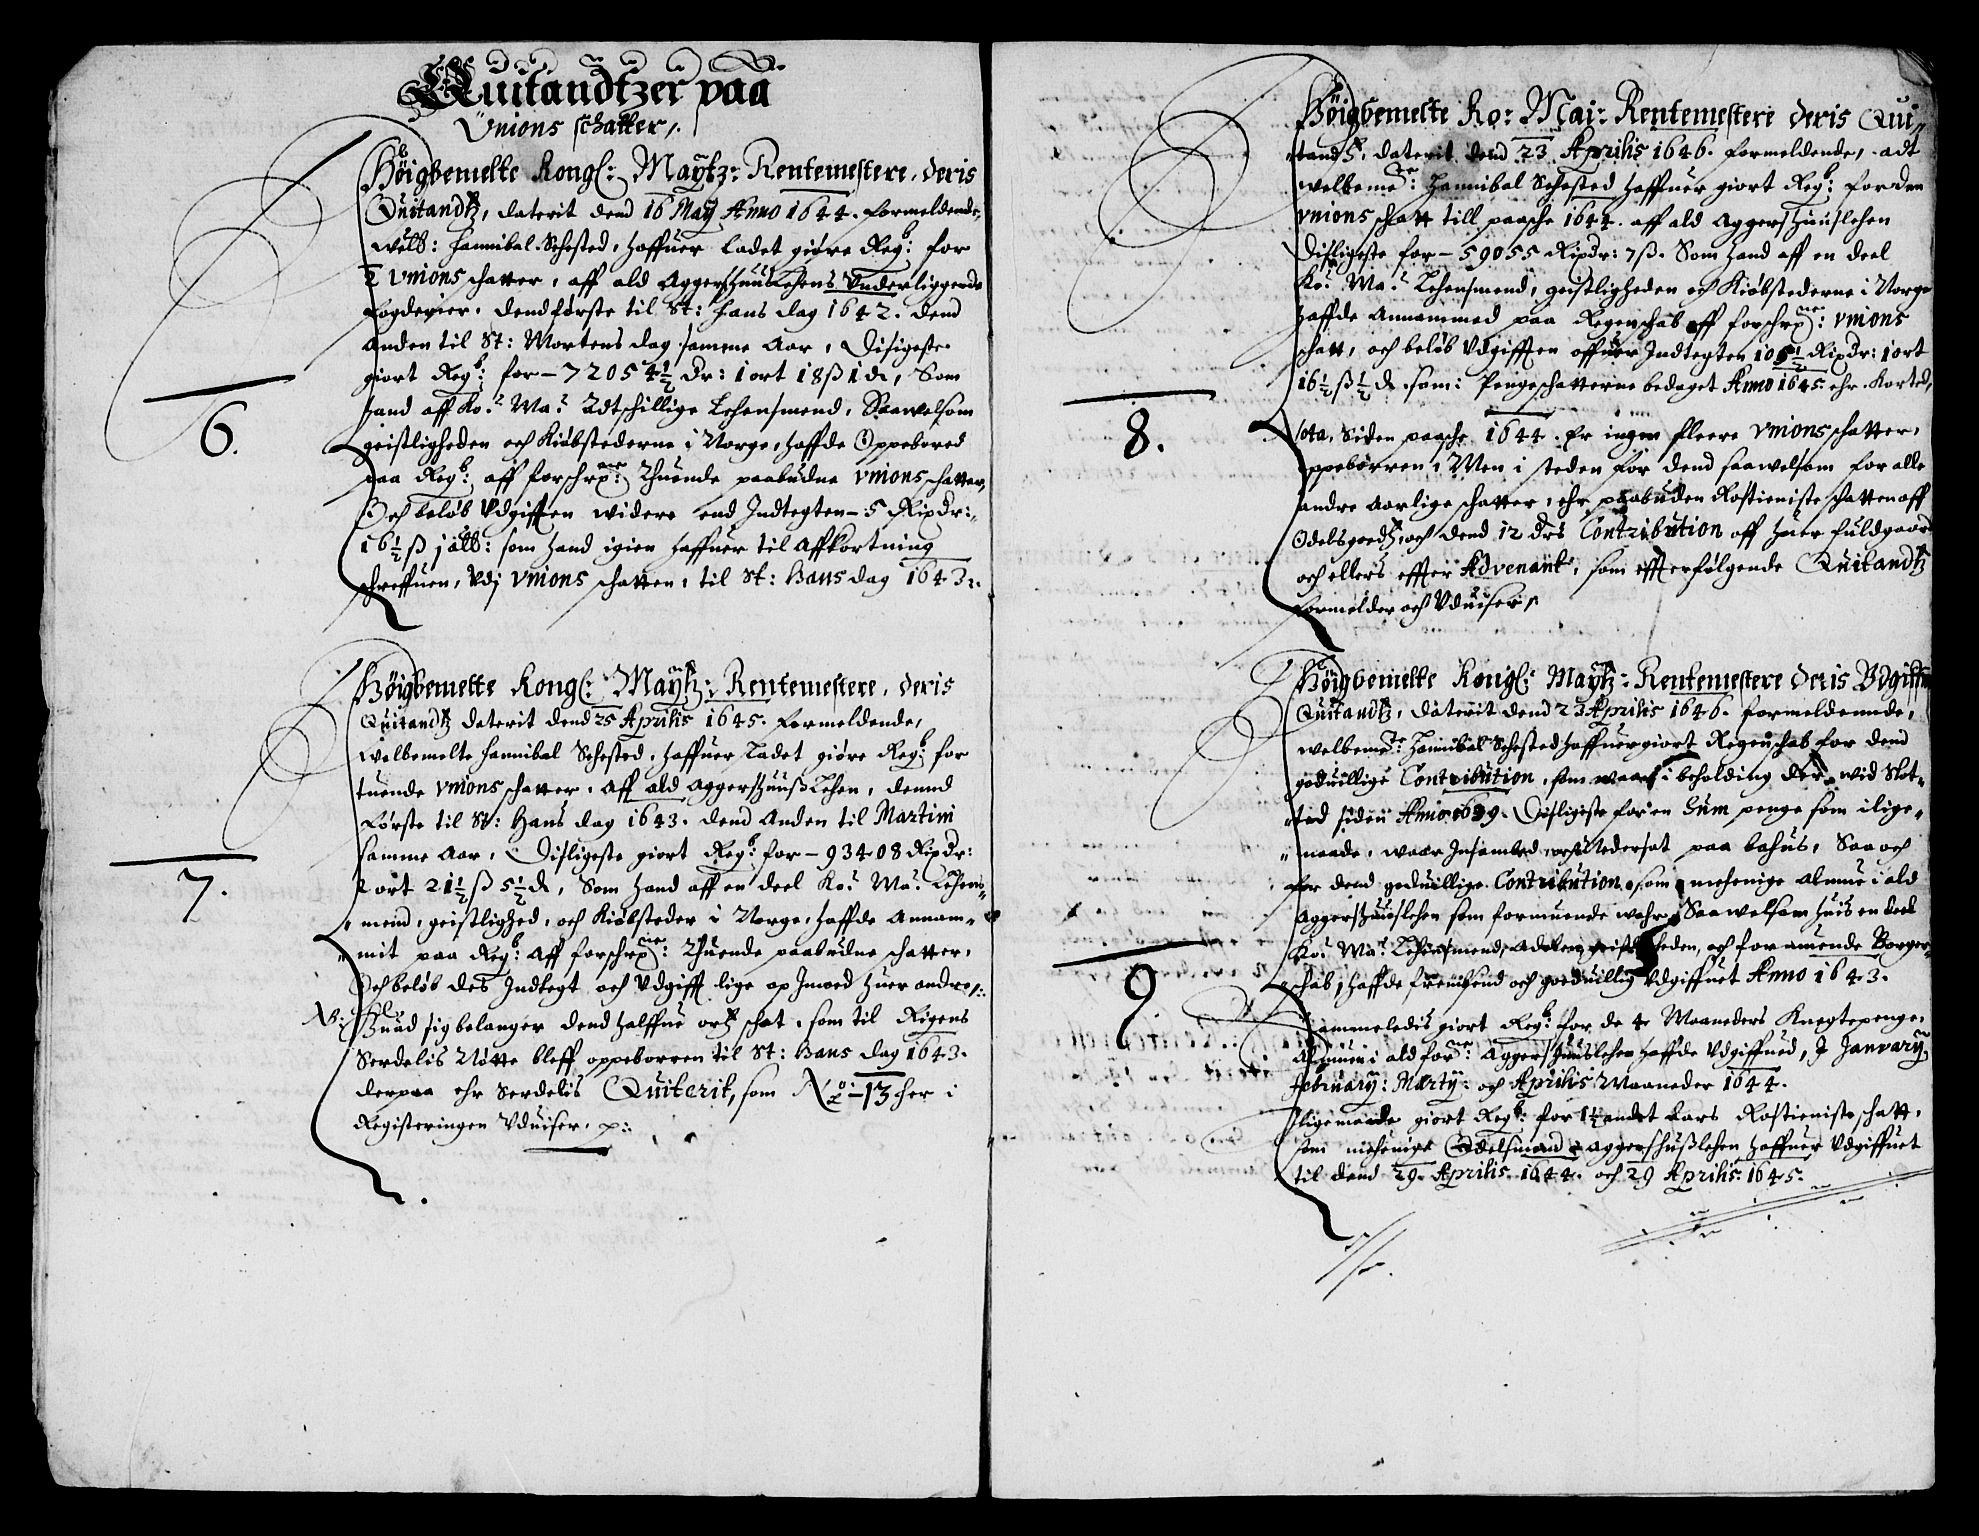 Quitandtzer paa
Unions schatter/.
Høigbemelte Kongl: Maÿtz: Rentemestere, deris
Quitandtz, daterit dend 16 Maÿ Anno 1644. formeldende,
Welb: Hannibal Sehested, haffuer ladet giøre Regb: for
2 Unionschatter, aff ald Aggershuus Lehens Underliggende
fogderier, dend første til St: Hans dag 1642. dend
Anden til St: Mortens dag samme Aar, Disligeste
giort Regb: for - 72054½ Dr: 1 ort 18 ß 1 d, Som
hand aff Ko: Ma: Adtschillige Lehensmend, Saawelsom
geistligheden och Kiøbstederne i Norge, haffde Oppebored
paa Regb: aff forschrne: Thuende paabudne Unions schatter,
Och beløb Udgifften widere end Indtegten - 5 Rixdr:
16½ ß jalb: som hand igien haffuer til Affkortning
schreffuen, Udj Unions schatten, til St: Hans dag 1643.
6.
Høigbemelte Kongl: Maÿtz: Rentemestere, deris
Quitandtz daterit dend 25 Aprilis 1645. formeldende,
Welbemelte Hannibal Sehested, haffuer Ladet giøre Regb: for
tuende Unions schatter, aff ald Aggershuuß Lehen, dennd
første til St: Hans dag 1643. dend Anden til Martini
samme Aar, Disligeste giort Regb: for - 93408 Rixdr:
2 ort 21½ ß 5½ d, Som hand aff en deel Ko: Ma: Lehens-
mend, geistlighed, och Kiøbsteder i Norge, haffde Annam-
mit paa Regb: Aff forschrne: Thuende paabudne schatter,
Och beløb des Indtegt och Udgifft lige op Imoed huer andre/:
NB: Huad sig belanger dend halffue ortz schat, som til Rigens
Serdelis Nøtte bleff oppeborren til St: Hans dag 1643.
derpaa ehr Serdelis Quiterit, som No - 13 her i
Registeringen Uduiser. p:
7.
Høigbemelte Ko: Mai: Rentemestere deris Qui-
tandtz, daterit dend 23 Aprilis 1646. formeldende, adt
welbemte: Hannibal Sehested haffuer giort Regb: for den
Unions schatt till paasche 1644. aff ald Aggershuuslehen
Disligeste for - 59055 Rixdr: 7 ß. Som hand aff en deel
Ko: Ma: Lehensmend, geistligheden och Kiøbstederne i Norge
haffde Annammed paa Regenschab aff forschrne: Unions
schatt, och beløb Udgifften offuer Indtegten 105½ Rixdr: 1 ort
16½ ß ½ d. som: Pengeschatterne bedaget Anno 1645 ehr Korted,
Nota, Siden paasche 1644. Er ingen fleere Unions schatter,
oppebørren, Men i steden for dend saawelsom for alle
andre Aarlige schatter, ehr paabuden Rostieniste schatten aff
Odelsgoedtz, och dend 12 Drs Contribution aff huer fuldgaar
och ellers effter Advenant, som effterfølgende Quitandtz
formelder och Uduiser/.
8.
Høigbemelte Kongl: Maÿtz: Rentemestere deris Udgiffne
Quitandtz, daterit dend 23 Aprilis 1646. formeldennde,
welbemte: Hannibal Sehested haffuer giort Regenschab for dend
goduillige Contribution, som waar i beholding der wid Slot-
ted siden Anno 1639. Disligeste for en Sum penge som i lige-
maade, waar Insamled Nedersat paa Bahus, Saa och
for dend goduillige Contribution, som mehenige Almue i ald
Aggershuuslehen som formuende wahr, Saawelsom huis en deel
Ko: Ma: Lehensmend, Adelen, geistligheden, och formuende Borger-
schab, haffde fremsend och goduillig Udgiffuet Anno 1643.
Sammeledis giort Regb: for de 4 Maaneders Knegtepenge,
Almuen i ald forne: Aggershuuslehen haffde Udgiffued, I Januarÿ,
februarÿ: Martÿ: och Aprilis Maaneder 1644.
Ligemaade giort Regb: for 1½ andet Aars Rostieniste schatt,
som mehenige Odelsmend i Aggershußlehen haffuer Udgiffuet
til dend 29. Aprilis 1644. och 29 Aprilis 1645.
9